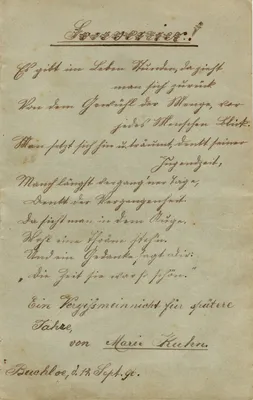 Souvenier!
Es gibt im Leben Stunden, da zieht
man sich zurück
Von dem Gewühl der Menge, vor
jedes Menschen Blick.
Man setzt sich hin u. träumt, denkt seiner
Jugendzeit,
Manch längst vergang'ner Tage,
Denkt der Vergangenheit.
Da sieht man in dem Auge
Wohl eine Thräne steh'n
Und ein Gedanke sagt uns:
"Die Zeit sie war so schön."
Ein Vergißmeinnicht für spätere
Jahre,
von Marie Kuhn.
Buchloe, d. 13. Sept. 90.